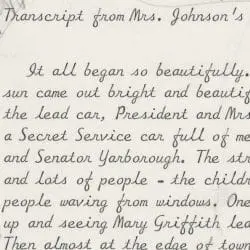 Transcript from Mrs. Johnson's
It all began so beautifully.
sun came out bright and beautif
the lead car, President and Mrs
a Secret Service car full of me
and Senator Yarborough. The str
and lots of people - the childre
people waving from windows. One
up and seeing Mary Griffith lea
Then almost at the edge of town